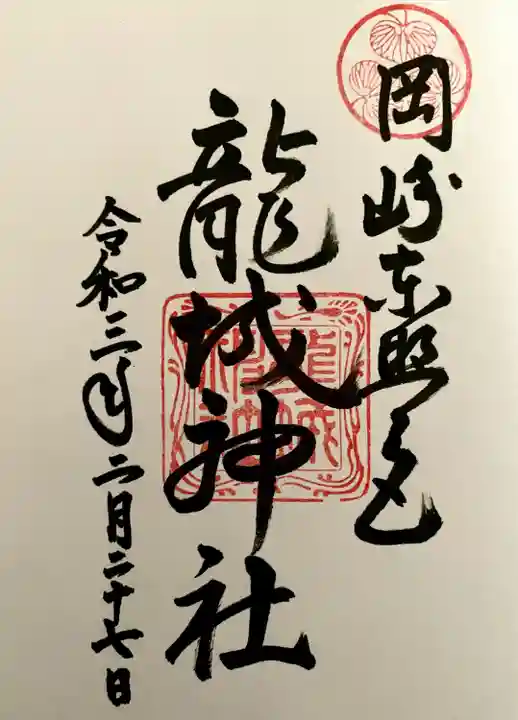 岡崎東照宮
龍城神社
令和三年二月二十七日
龍城神社